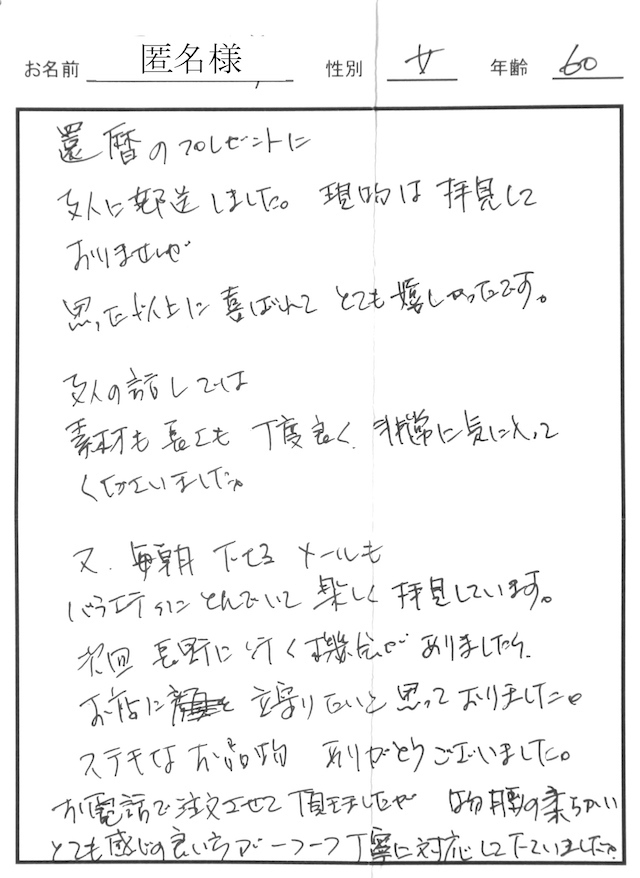 お名前 匿名様 性別 女 年齢 60
還暦のプレゼントに
友人に郵送しました。現物は拝見して
おりませんが
思った以上に喜ばれて とても嬉しかったです。
友人の話しでは
素材も長さも 丁度良く、非常に気に入って
くださいました。
又、毎朝 下さる メールも
バラエティにとんでいて 楽しく 拝見しています。
次回 長野に行く機会が ありましたら、
お店に 立寄りたいと 思っておりました。
ステキなお品物 ありがとうございました。
お電話で注文させて頂きましたが 物腰の柔らかい
とても感じの良い 丁寧に対応して下さいました。